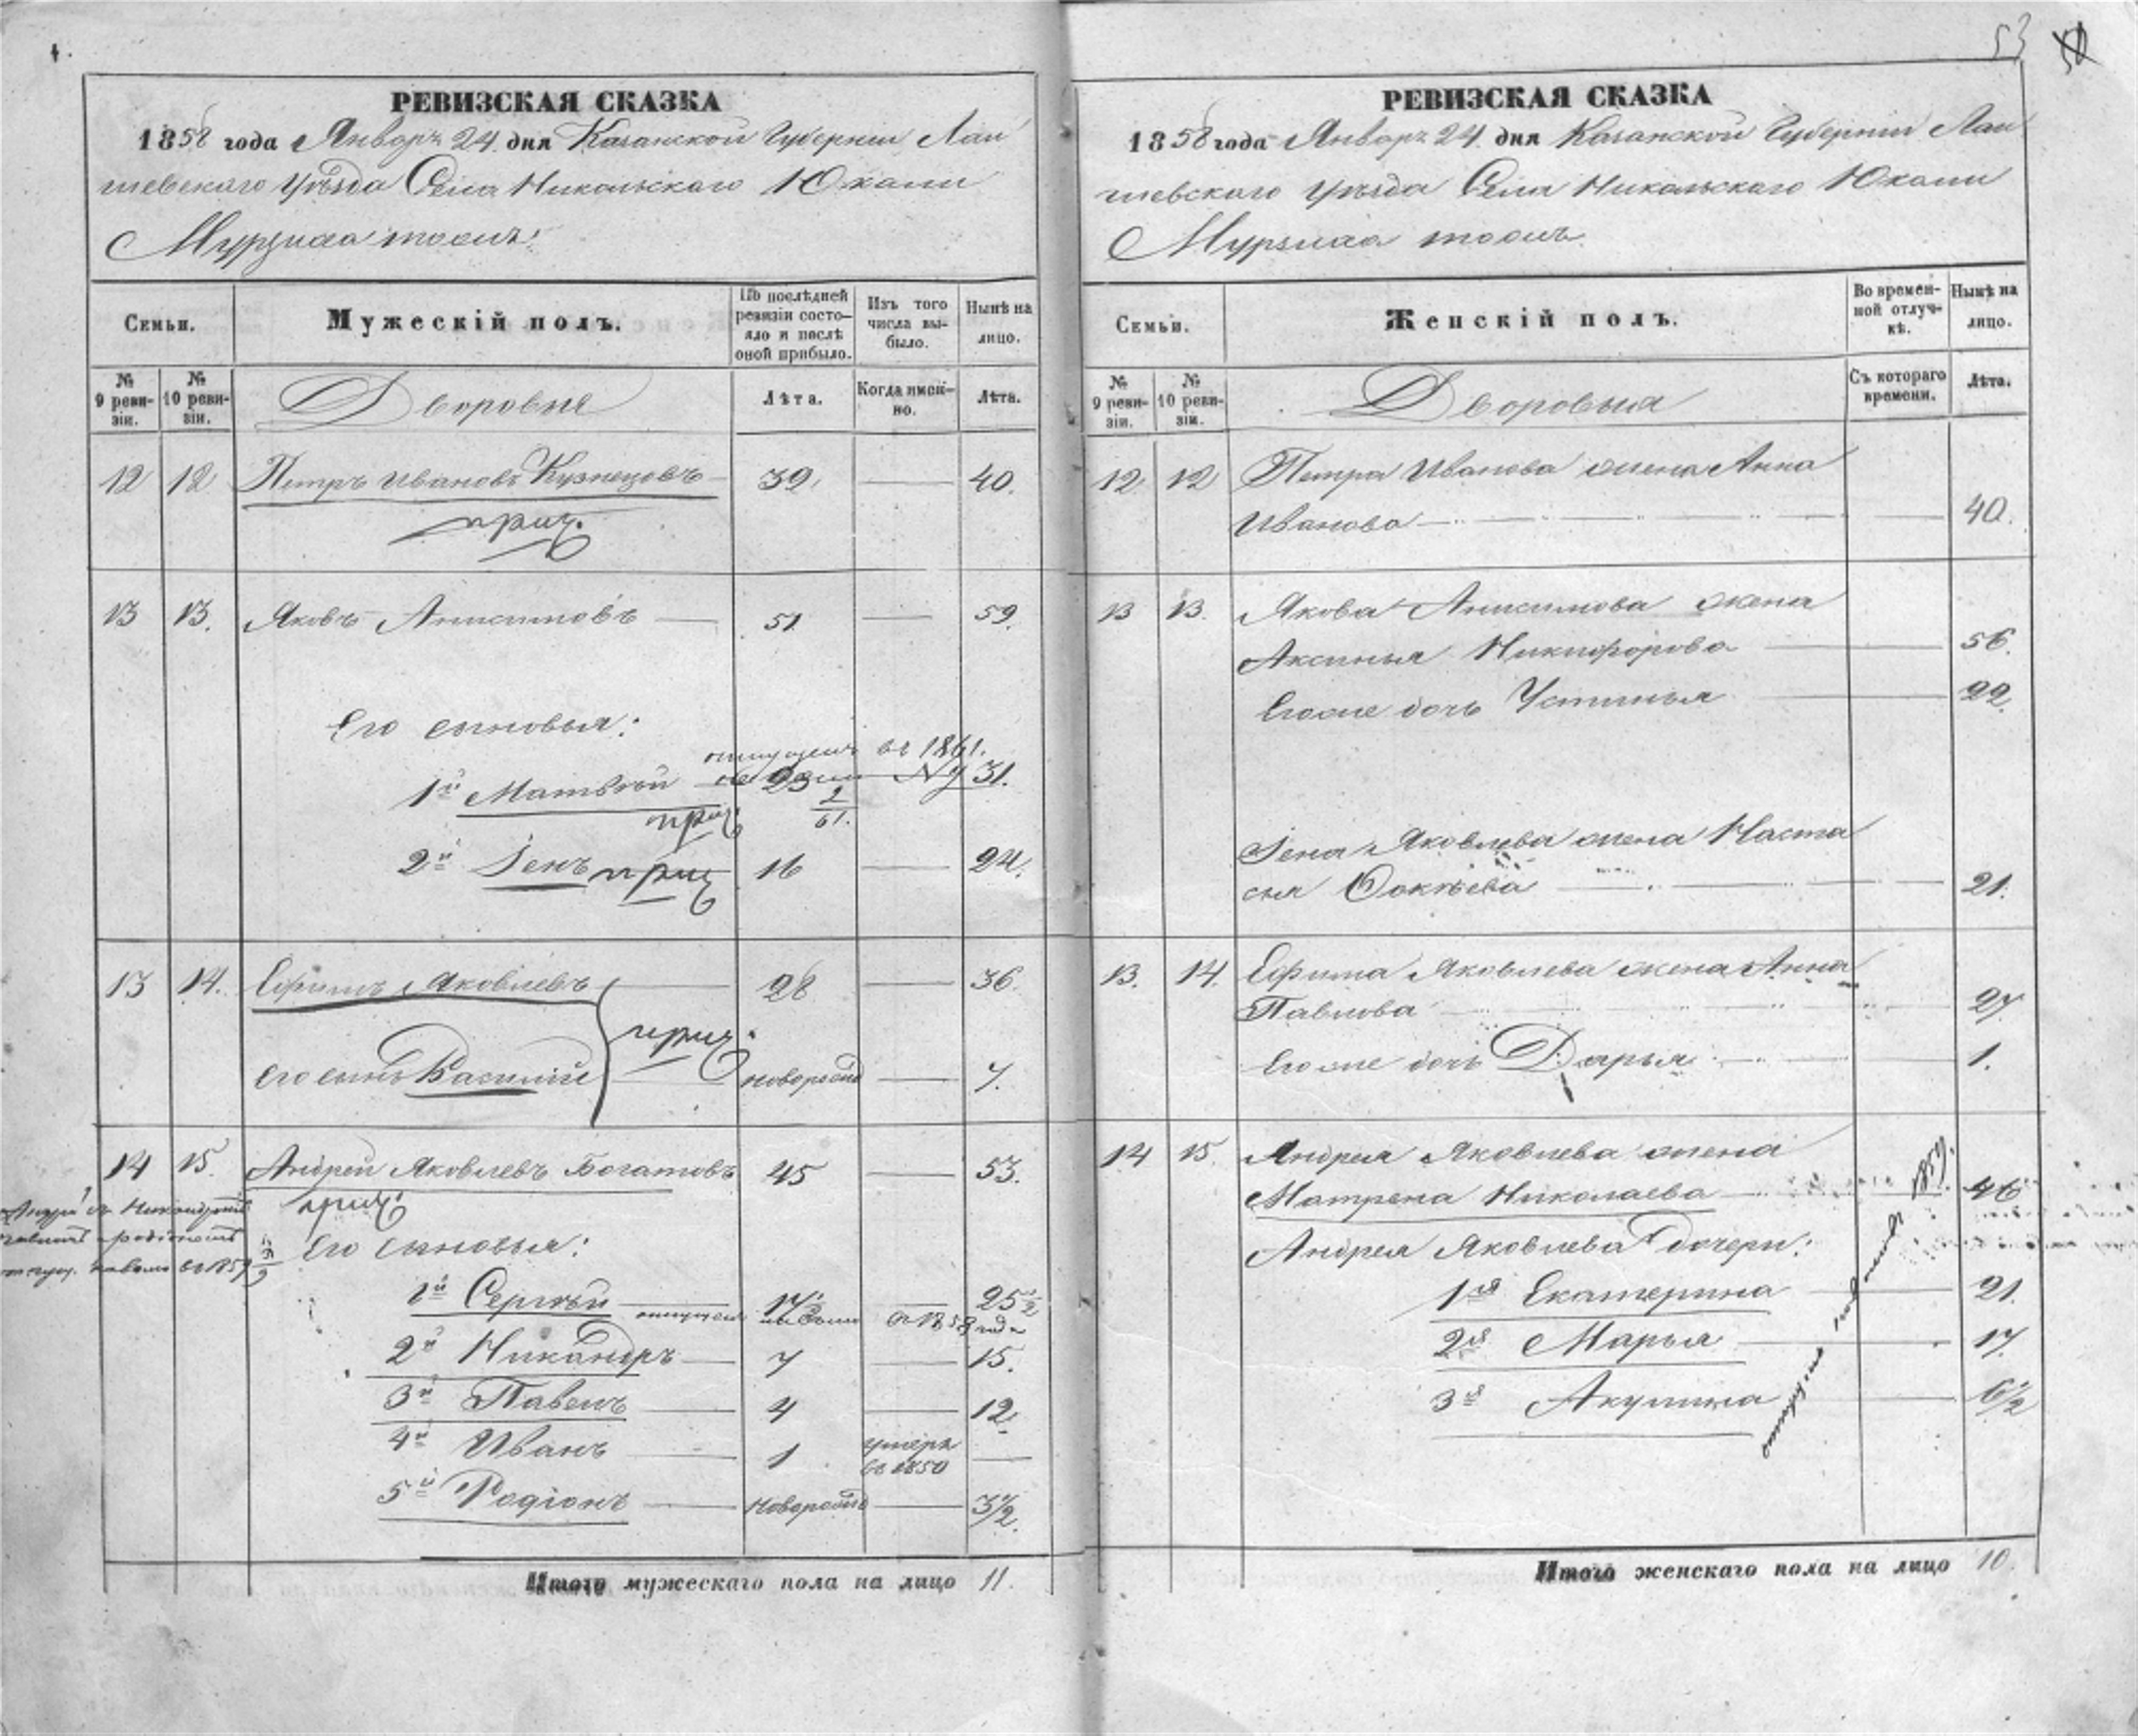 53 50
РЕВИЗСКАЯ СКАЗКА
1858 года Январь 24 дня Казанской Губернии Лаи
шевскаго Уѣзда Села Никольскаго Юкачи
Мурзиха тожъ
Семьи.
Мужескій полъ.
По послѣдней ревизіи состояло и послѣ оной прибыло.
Изъ того числа выбыло.
Нынѣ на лицо.
№ 9 ревизіи.
№ 10 ревизіи.
Дворовыя
Лѣта.
Когда именно.
Лѣта.
12 12 Петръ Ивановъ Кузнецовъ 39 — 40.
13 13. Яковъ Анисимовъ — 51 — 59.
Его сыновья:
отпущенъ въ 1861.
1й Матвѣй 23 31.
2й Іенъ 16 — 24.
13 14. Ефимъ Яковлевъ — 28 — 36.
его сынъ Василій — новорожд — 7.
14 15. Андрей Яковлевъ Богатовъ 45 — 53.
Его сыновья:
1й Сергѣй — 17½ — 25½
отпущенъ на волю въ 1858 годе
2й Никандръ — 7 — 15.
3й Павелъ — 4 — 12.
4й Иванъ — 1 умеръ въ 1850 —
5й Родіонъ — новорожд — 3½.
Итого мужескаго пола на лицо 11.
РЕВИЗСКАЯ СКАЗКА
1858 года Январь 24 дня Казанской Губерніи Лаи
шевскаго Уѣзда Села Никольскаго Юкачи
Мурзиха тожъ
Семьи.
Женскій полъ.
Во временной отлучкѣ.
Нынѣ на лицо.
№ 9 ревизіи.
№ 10 ревизіи.
Дворовыя
Съ котораго времени.
Лѣта.
12 12 Петра Иванова жена Анна
Иванова — 40.
13 13. Якова Анисимова жена
Аксинья Никифорова — 56.
Егоже дочь Устинья — 22.
Іена Яковлева жена Наста
сья Фокѣева — 21.
13. 14. Ефима Яковлева жена Анна
Павлова — 27
Егоже дочь Дарья — 1.
14 15. Андрея Яковлева жена
Матрена Николаева — 46
Андрея Яковлева дочери:
1я Екатерина — 21.
2я Марья — 17.
3я Акулина — 6½
Итого женскаго пола на лицо 10.